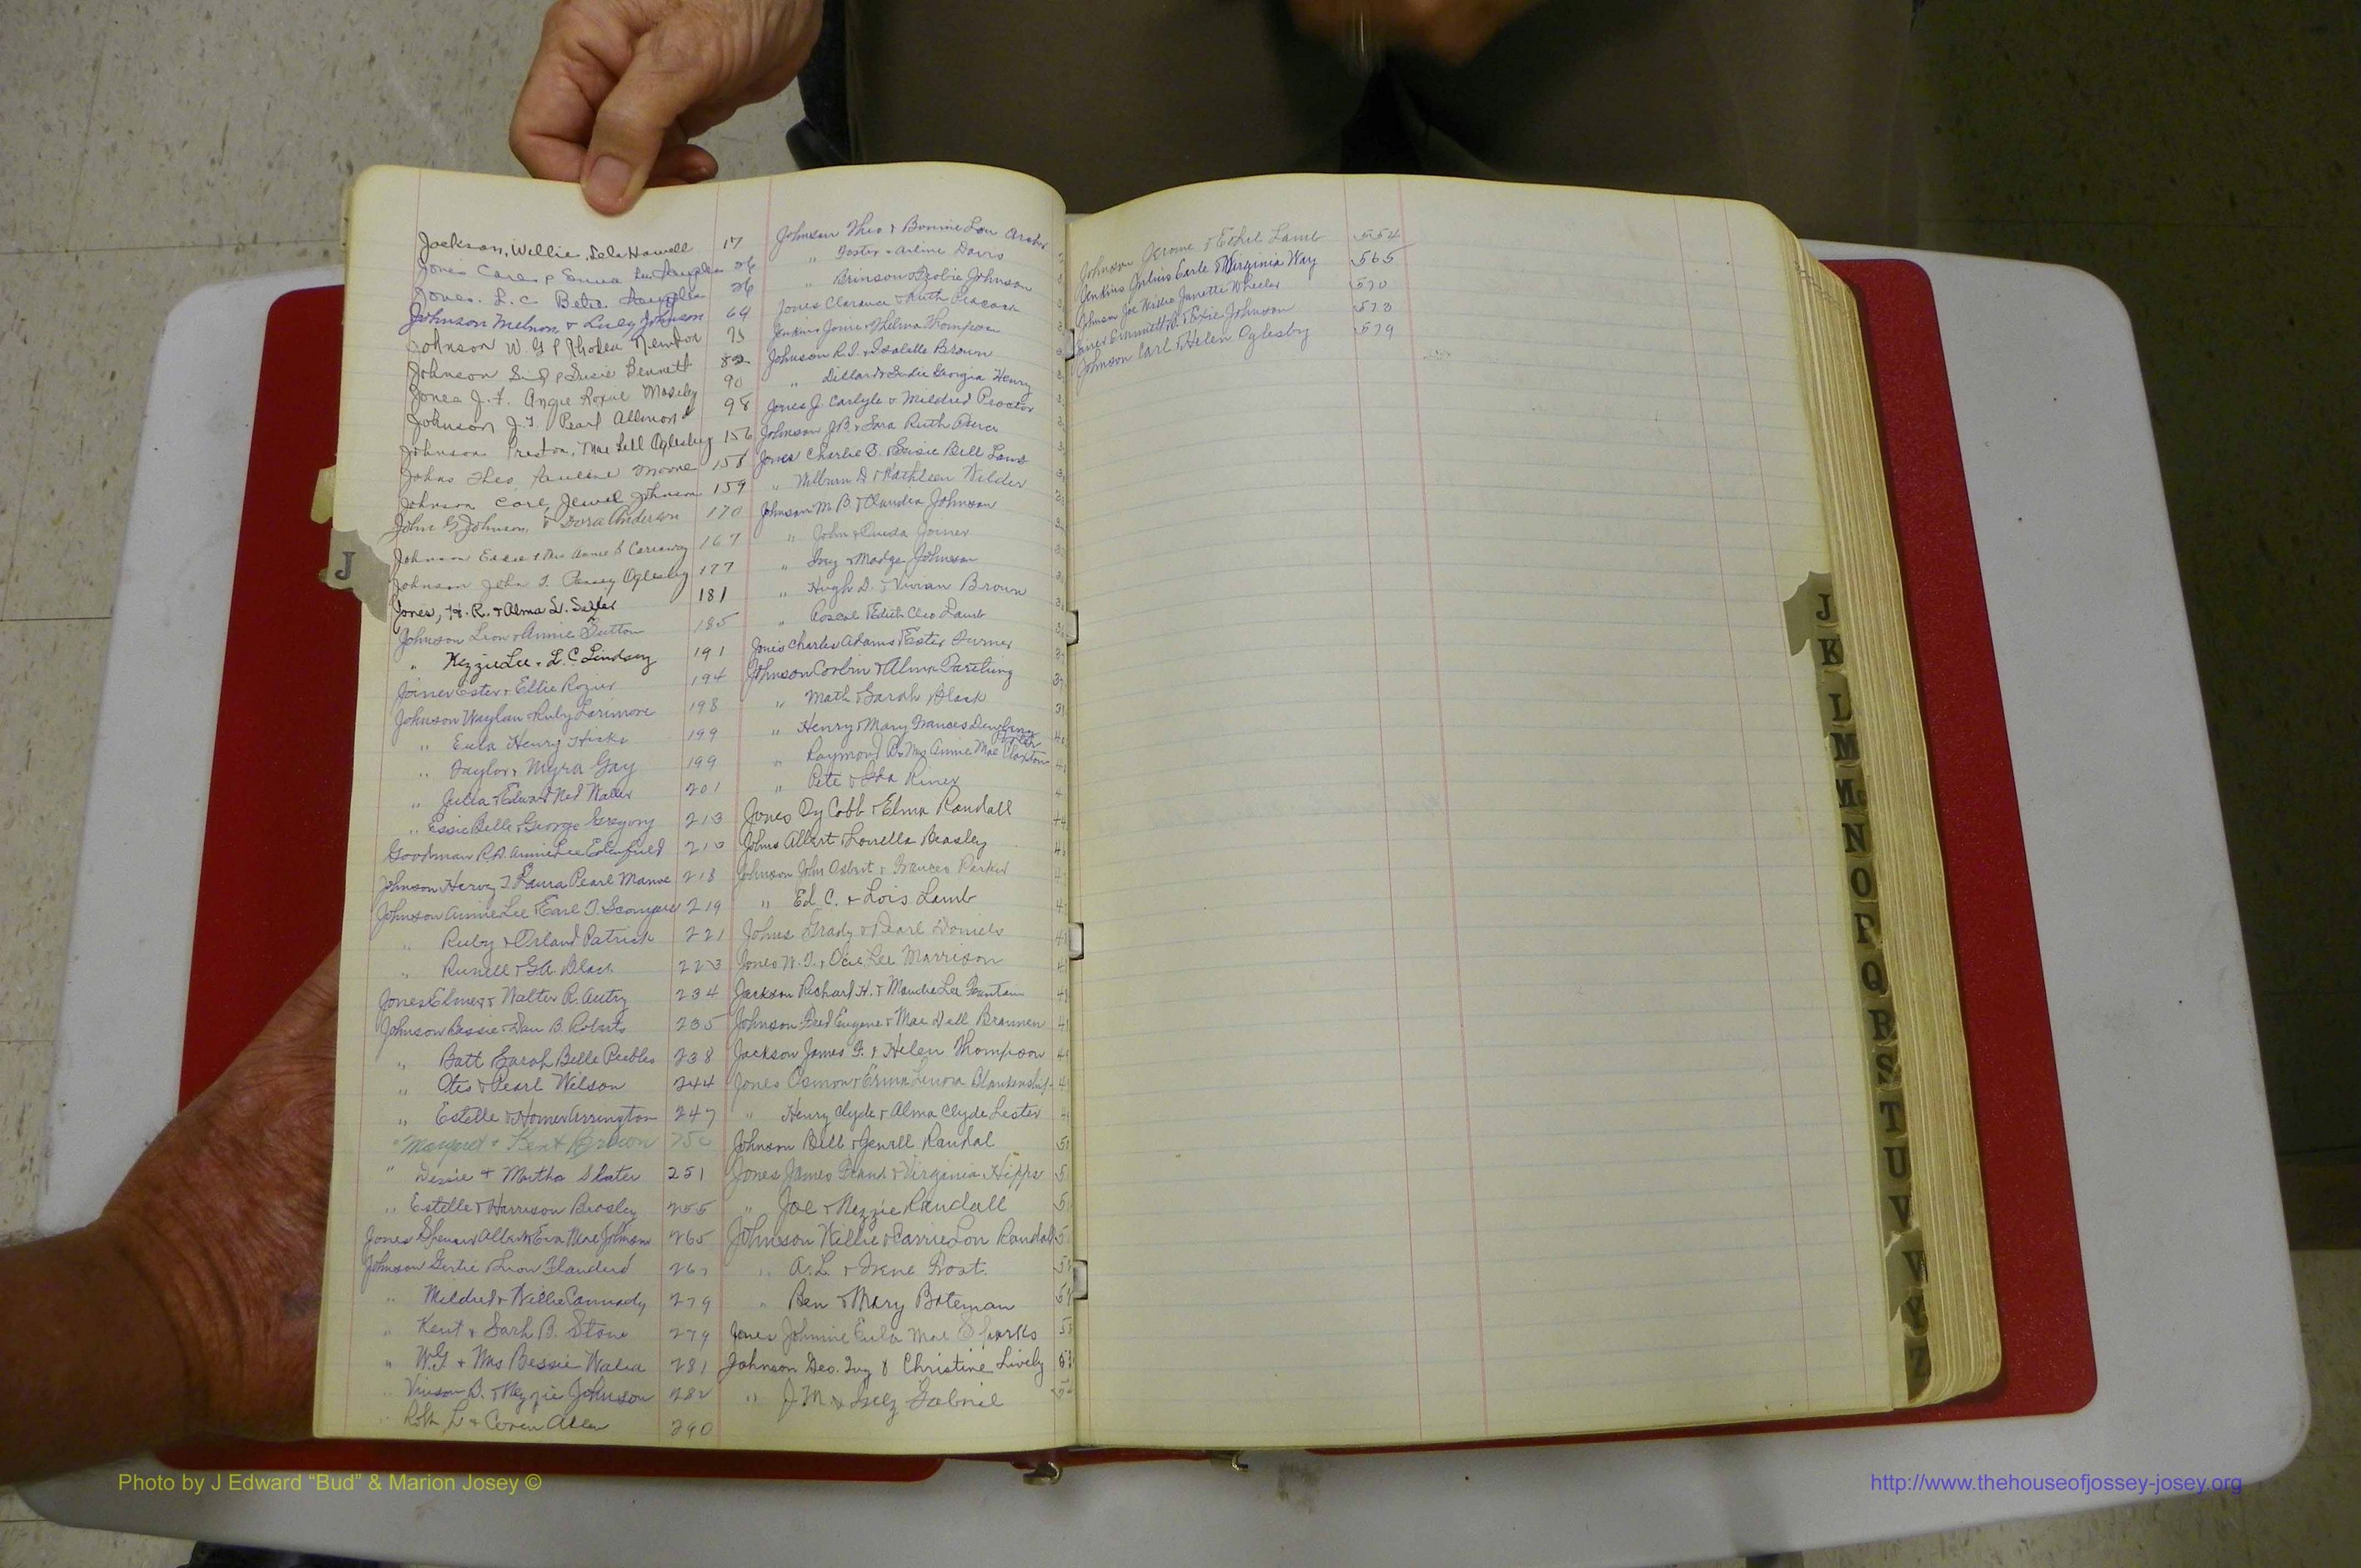 Jackson, Willie, Lela Howell 17
Jones Carl & Emma Lee 26
Jones. L. C. 26
Johnson Melnon & Lucy Johnson 64
Johnson W. G. Rhoda Newton 75
Johnson Sid & Susie Bennett 82
Jones J. F. Angie Roxie Mosley 90
Johnson J. T. Pearl Allmond 98
Johnson Preston, Mae Lell Oglesby 156
Johns Theo, Pauline Moore 158
Johnson Carl, Jewel Johnson 159
John G Johnson, & Dora Anderson 170
Johnson Essie & Annie B Carraway 167
Johnson John T. Oglesby 177
Jones, H. R. & Alma L. Salter 181
Johnson Leon & Annie Sutton 185
" Kezzie Lee & L. C. Lindsey 191
Joiner Ester & Ellie Rozier 194
Johnson Waylan & Ruby Larimore 198
" Eula Henry Hicks 199
" Taylor & Myra Gay 199
" Julia & Edward Ned Water 201
" Essie Belle & George Gregory 213
Goodman R. D. Annie Lee Edenfield 213
Johnson Hervy T Laura Pearl 218
Johnson Annie Lee & Earl T. 219
" Ruby & Orland Patrick 221
" Runell & G.A. Black 223
Jones Elmer & Walter R. Autry 234
Johnson Bessie & Dan B. Roberts 235
" Batt Sarah Belle Peebles 238
" Otis & Pearl Wilson 244
" Estelle & Homer Arrington 247
" Margaret & Kent Brown 250
" Dessie & Martha Slater 251
" Estelle & Harrison Beasley 255
Jones Spencer Albert & Eva Mae Johnson 265
Johnson Gertie & Leon Flanders 267
" Mildred & Willie Cannady 279
" Kent & Sarh B. Stone 279
" W.G & Mrs Bessie 281
" Vinson B. & Kezzie Johnson 282
" L & Allen 290
Johnson Theo & Bonnie Lou
" Foster & Arline Davis
" Brinson & Johnson
Jones Clarance & Ruth Peacock
Jenkins & Thelma Thompson
Johnson R. T. & Isabelle Brown
" Dillard & Sadie Georgia Henry
Jones J. Carlyle & Mildred Proctor
Johnson J.B. & Sara Ruth Pierce
Jones Charlie & Bell Lamb
" Wilburn D & Kathleen Wilder
Johnson M. B. & Claudia Johnson
" John & Ouida Joiner
" Ivy & Madge Johnson
" Hugh D. & Vivian Brown
" Roscoe & Edith Cleo Lamb
Jones Charles Adams & Ester Turner
Johnson Corbin & Alma
" Math & Sarah Black
" Henry & Mary Frances
" Raymond B & Mrs Annie Mae Claxton
" Pete & Ida Riner
Jones Ty Cobb & Elma Randall
Johns Albert & Lourella Beasley
Johnson John & Frances Parker
" Ed C. & Lois Lamb
Johns Grady & Pearl Daniels
Jones W. T. & Ocie Lee Morrison
Jackson Richard H. & Maudie Lee Fountain
Johnson Fred Eugene & Mae Dell Brannen
Jackson James F. & Helen Thompson
Jones Osmon & Erma Lenora Blankenship
" Henry Clyde & Alma Clyde Lester
Johnson Bill & Jewell Randal
Jones James Frank & Virginia Hipps
" Joe & Kezzie Randall
Johnson Willie & Carrie Lou Randal
" A. L. & Irene Frost.
" Ben & Mary Bateman
Jones Johnnie Eula Mae Sparks
Johnson Geo. Ivy & Christine Lively
" J M. & Inez Gabriel
Johnson Jerome & Ethel Lamb 554
Jenkins Julius Earle & Virginia Way 565
Johnson Joe Willie Janette Wheeler 570
Joiner Emmett R. & Exie Johnson 573
Johnson Carl & Helen Oglesby 579
J
J
K
L
M
Mc
N
O
P
Q
R
S
T
U
V
W
Y
Z
Photo by J Edward “Bud” & Marion Josey ©
http://www.thehouseofjossey-josey.org